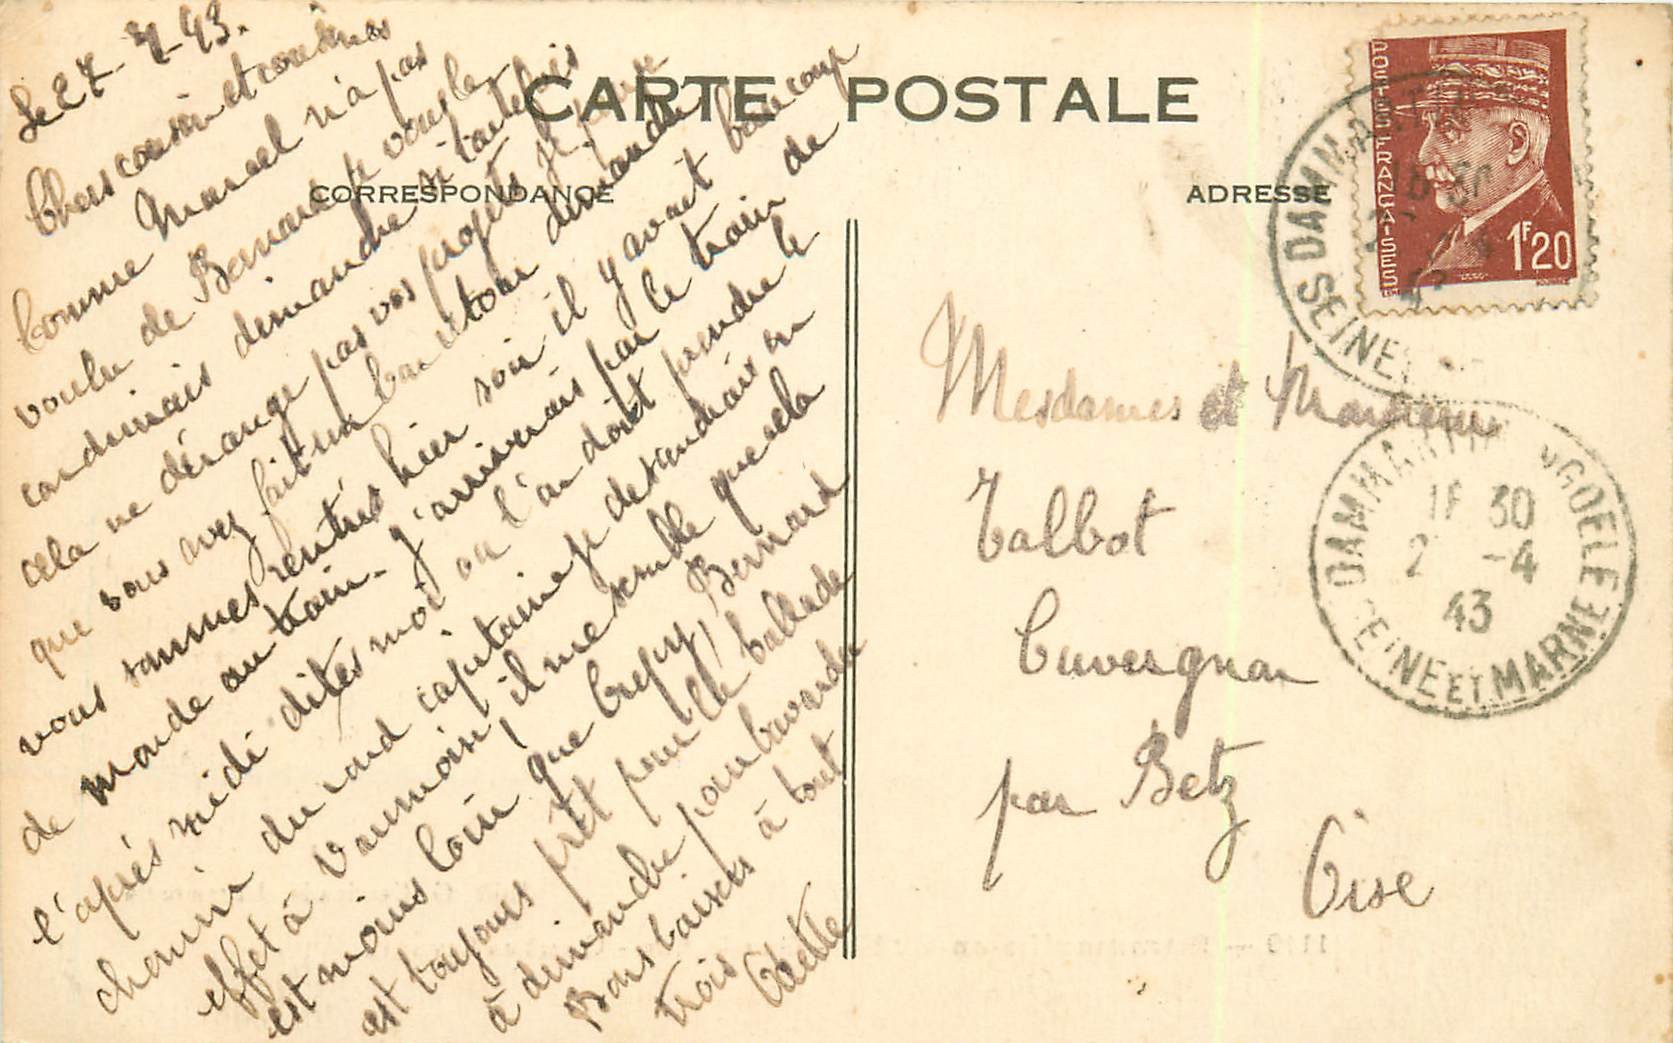 CARTE POSTALE
CORRESPONDANCE
ADRESSE
Chers cousin et cousines
Comme Marcel n'a pas
voulu de Bernard je vous le
conduirais dimanche si toutefois
cela ne dérange pas vos projets je pense
que vous avez fait un bon tour dimanche
vous sommes rentrés hier soir il y avait beaucoup
de monde au train. J'arriverais par le train de
l'après midi dites moi ou l'on doit prendre le
chemin du rond capitaine je descendrais en
effet à Vaumoise il me semble que cela
est moins loin que Crépy, Bernard
est toujours prêt pour la ballade
à dimanche pour bavarder
Bons baisers à tout
trois Odette
POSTES FRANÇAISES
1F20
DAMMARTIN
SEINE
Mesdames et Monsieur
Talbot
Cuvergnon
par Betz
Oise
DAMMARTIN GOELE
30
2 -4
43
SEINE ET MARNE